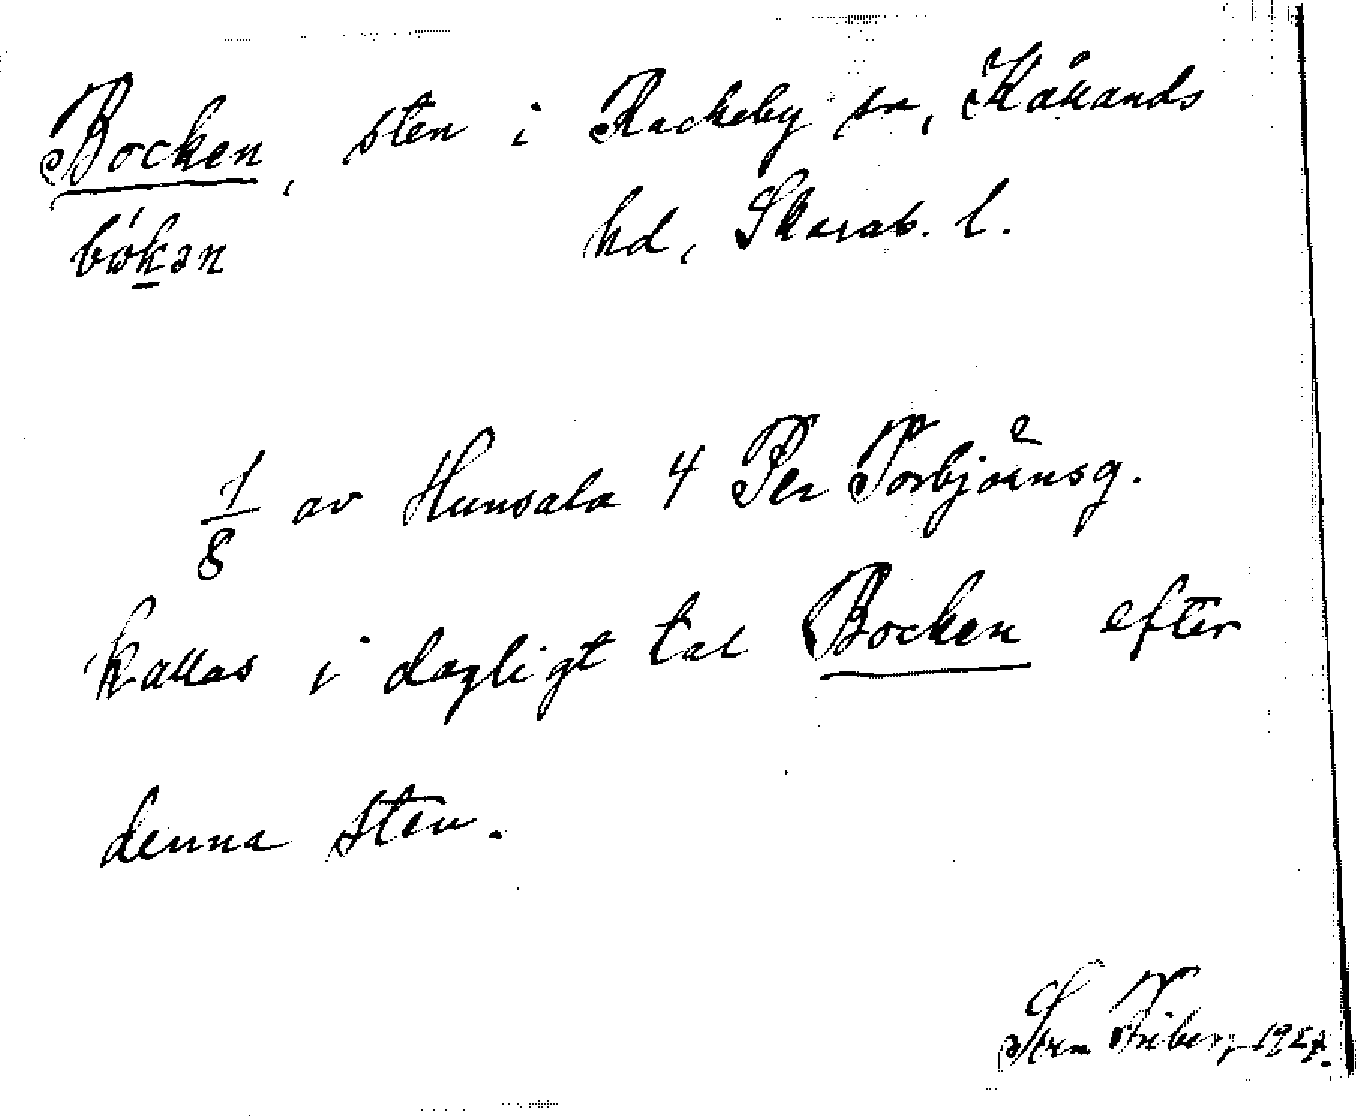 Bocken, sten i Rackeby sn, Kållands
bókən hd, Skarab. l.
1/8 av Hunsala 4 Per Torbjörnsg.
kallas i dagligt tal Bocken efter
denna sten.
Sven Friberg 1927.